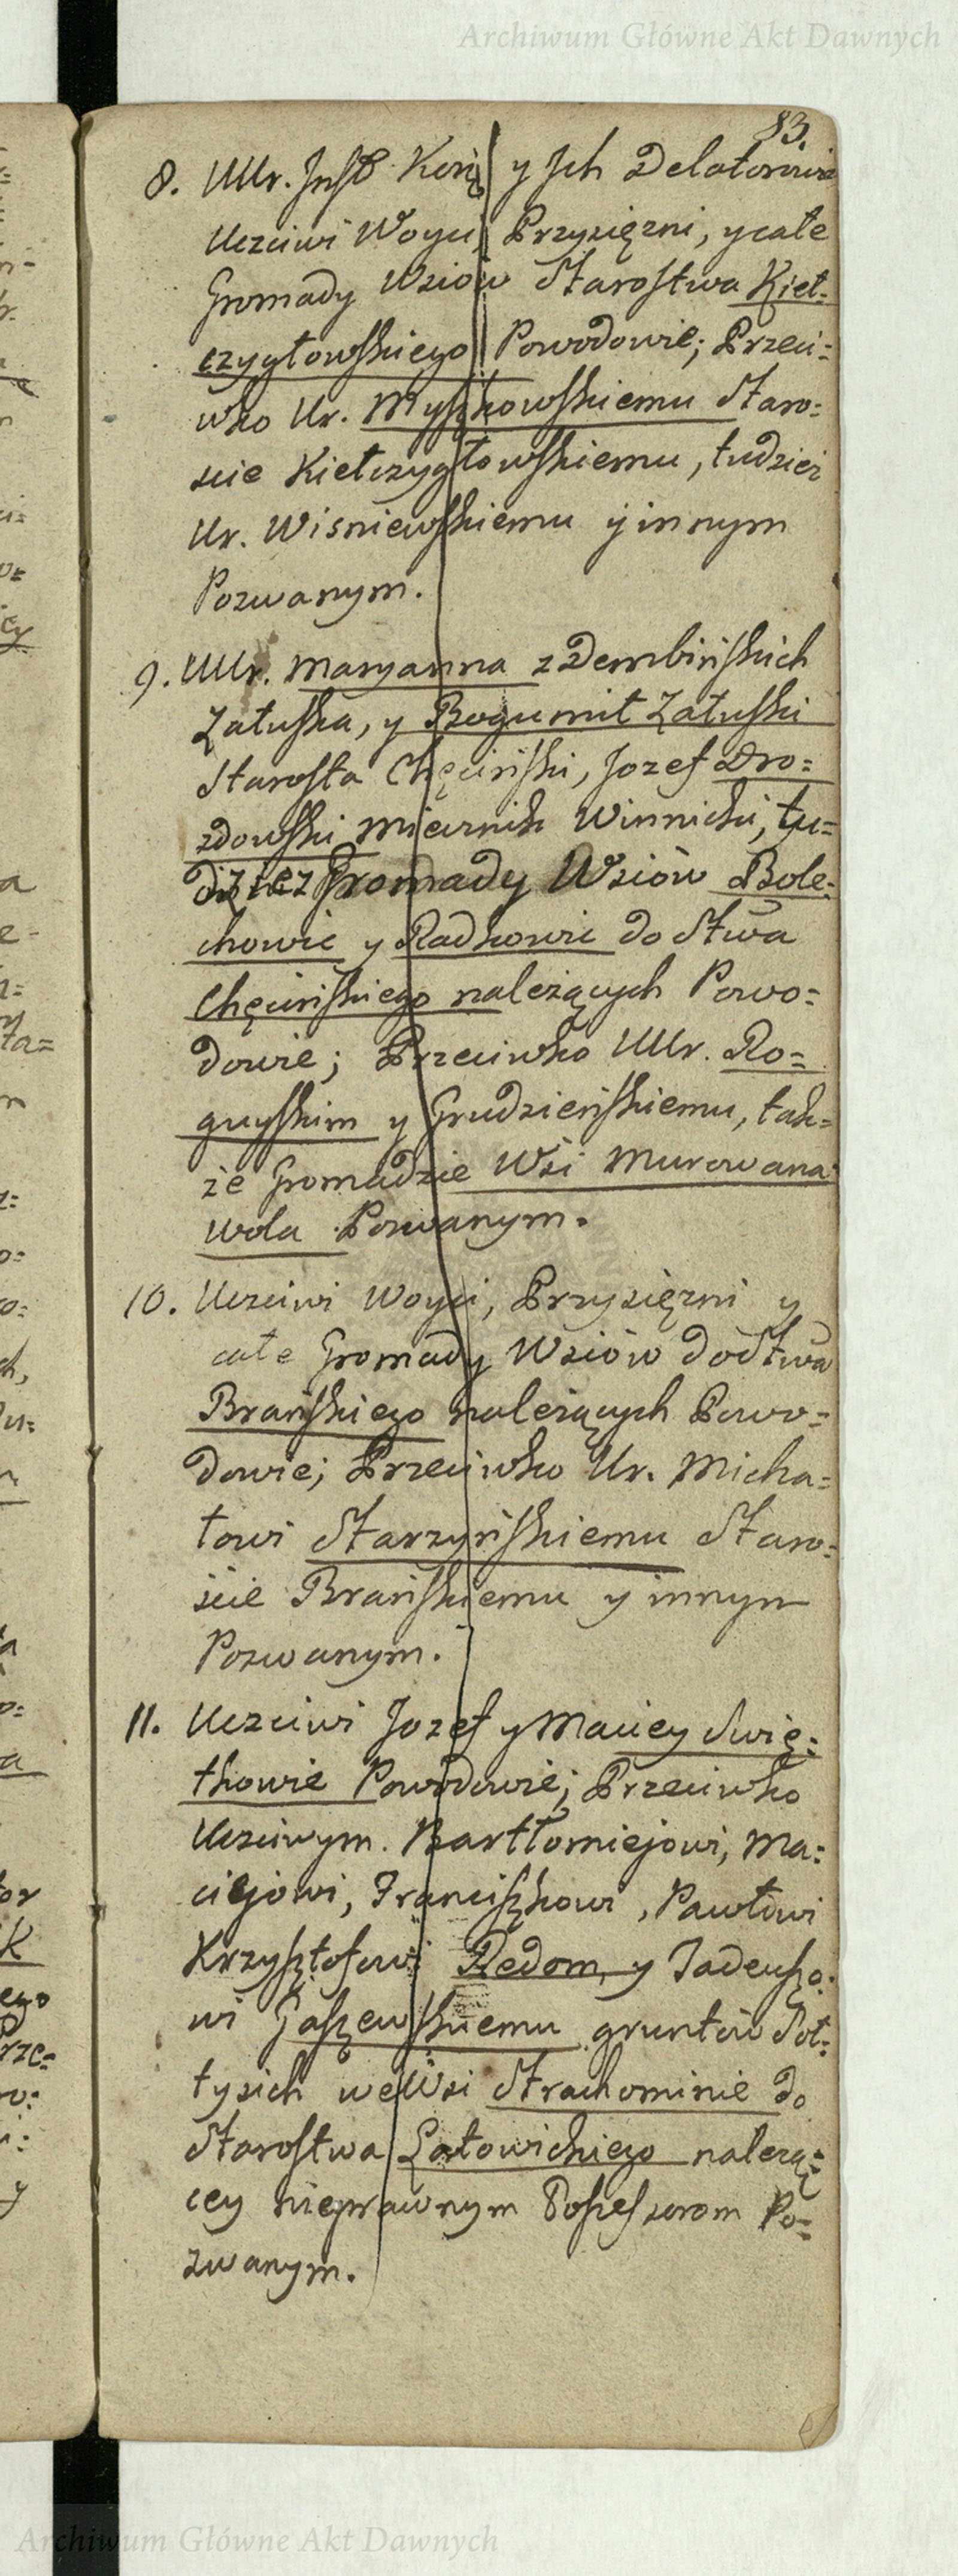 Archiwum Główne Akt Dawnych
83.
8. UUr. Inst. Kor. y Jch Delatorowie
Uczciwi Woyci, Przysięzni, y całe
Gromady Wsiów Starostwa Kieł=
czygłowskiego Powodowie; Przeci=
wko Ur. Myszkowskiemu Staro=
scie Kiełczygłowskiemu, tudziez
Ur. Wisniewskiemu y innym
Pozwanym.
9. UUr. Maryanna z Dembińskich
Załuska, y Bogumił Załuski
Starosta Chęciński, Jozef Dro=
zdowski Miernik Winnicki, tu=
dziez Gromady Wsiów Bole=
chowic y Radkowic do Stwa
Chęcińskiego należących Powo=
dowie; Przeciwko UUr. Ro=
guyskim y Grudzieńskiemu, tak=
że Gromadzie Wsi Murowana
Wola Pozwanym.
10. Uczciwi Woyci, Przysięzni y
całe Gromady Wsiów do Stwa
Brańskiego należących Powo=
dowie; Przeciwko Ur. Micha=
łowi Starzyńskiemu Staro=
ście Brańskiemu y innym
Pozwanym.
11. Uczciwi Jozef y Maciey Swię=
tkowie Powodowie; Przeciwko
Uczciwym. Bartłomiejowi, Ma=
ciejowi, Franciszkowi, Pawłowi
Krzysztofowi Redom, y Tadeuszo=
wi Gaszewskiemu gruntów Soł=
tysich we Wsi Strachominie do
Starostwa Latowickiego nalezą=
cey nieprawnym Possessorom Po=
zwanym.
Archiwum Główne Akt Dawnych